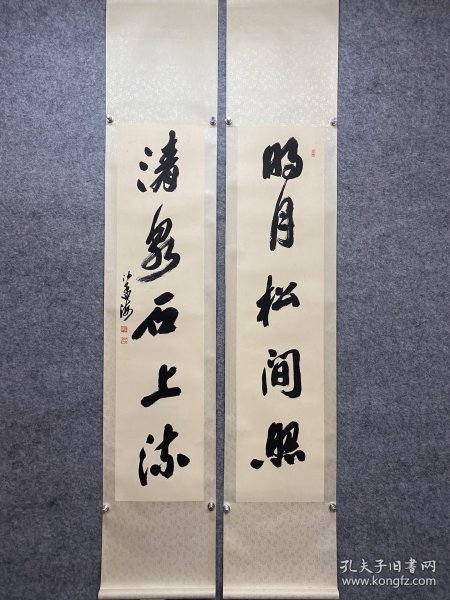 明月松间照
清泉石上流
沙孟海
孔夫子旧书网
www.kongfz.com